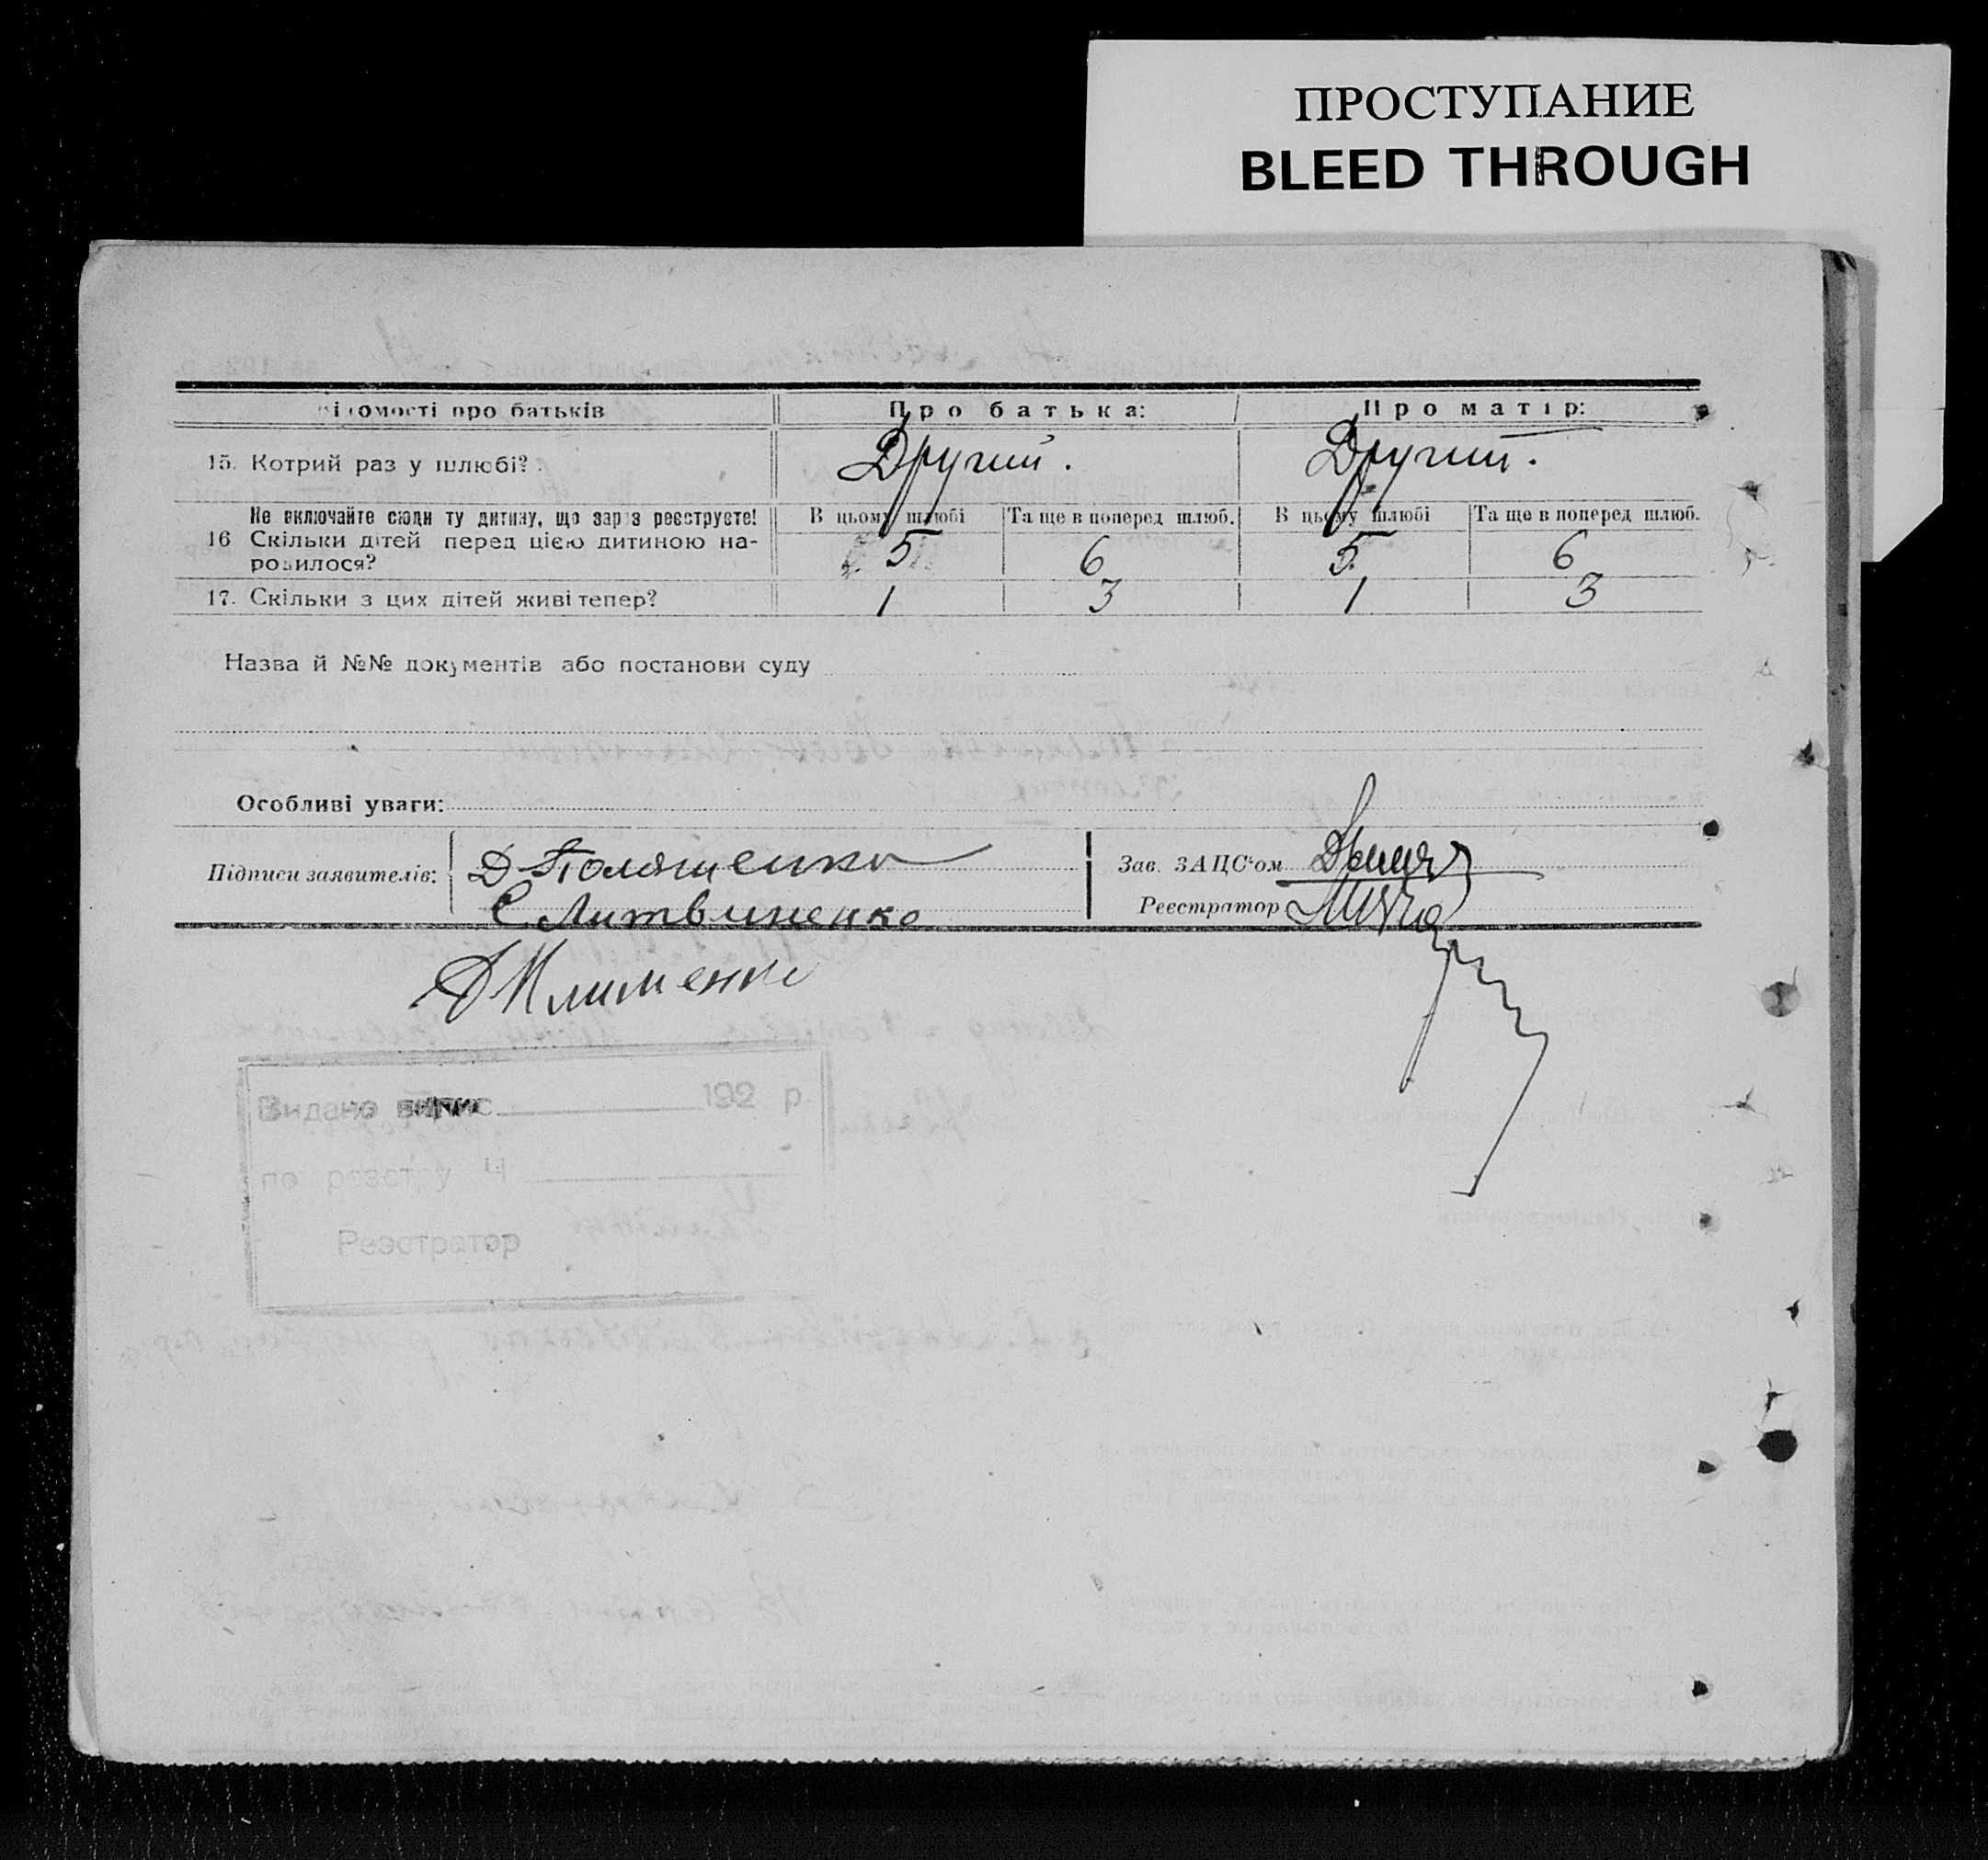 ПРОСТУПАНИЕ
BLEED THROUGH
ідомості про батьків Про батька: Про матір:
15. Котрий раз у шлюбі? Другий. Другий.
Не включайте сюди ту дитину, що зараз реєструєте! В цьому шлюбі Та ще в поперед шлюб. В цьому шлюбі Та ще в поперед шлюб.
16 Скільки дітей перед цією дитиною на-
родилося? 5 6 5 6
17. Скільки з цих дітей живі тепер? 1 3 1 3
Назва й №№ документів або постанови суду
Особливі уваги:
Підписи заявителів: Д Зав. ЗАЦС'ом
С Литвиненко Реєстратор
Д Клименко
Видано випис 192 р.
по реєстру Ч
Реэстратор